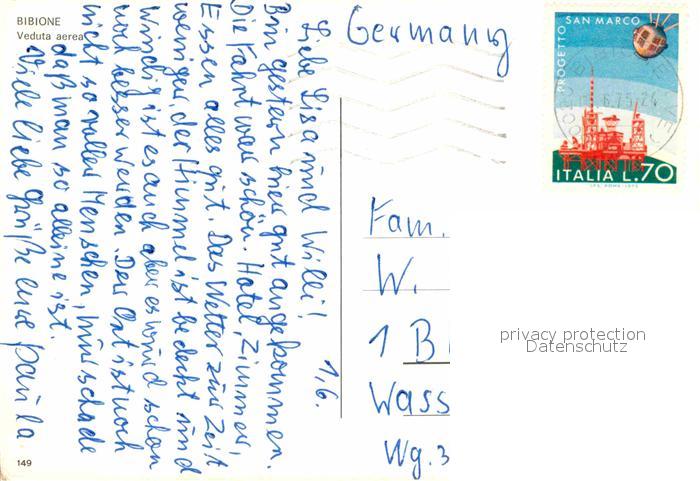 BIBIONE
Veduta aerea
1,6.
Liebe Lisa und Willi!
Bin gestern hier gut angekommen.
Die Fahrt war schön. Hotel, Zimmer,
Essen alles gut. Das Wetter zur Zeit
weniger, der Himmel ist bedeckt und
windig ist es auch aber es wird schon
noch besser werden. Der Ort ist noch
nicht so voller Menschen, nur schade
daß man so alleine ist.
Viele liebe Grüße eure Paula
149
Germany
PROGETTO SAN MARCO
ITALIA L.70
I.P.S. ROMA 1975
Fam.
W.
1 B
Wass
Wg. 3
privacy protection
Datenschutz